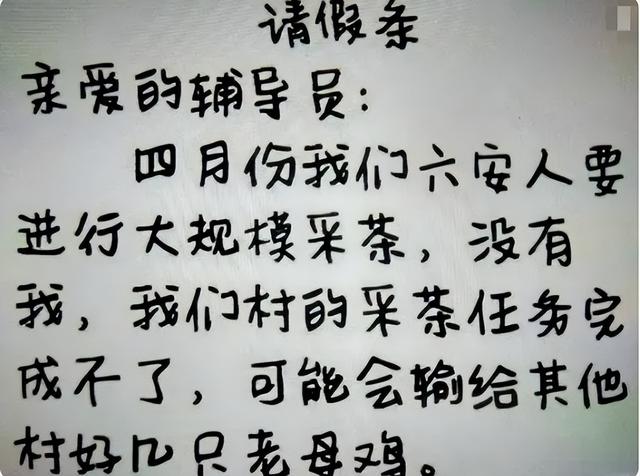 请假条
亲爱的辅导员：
四月份我们六安人要
进行大规模采茶，没有
我，我们村的采茶任务完
成不了，可能会输给其他
村好几只老母鸡。